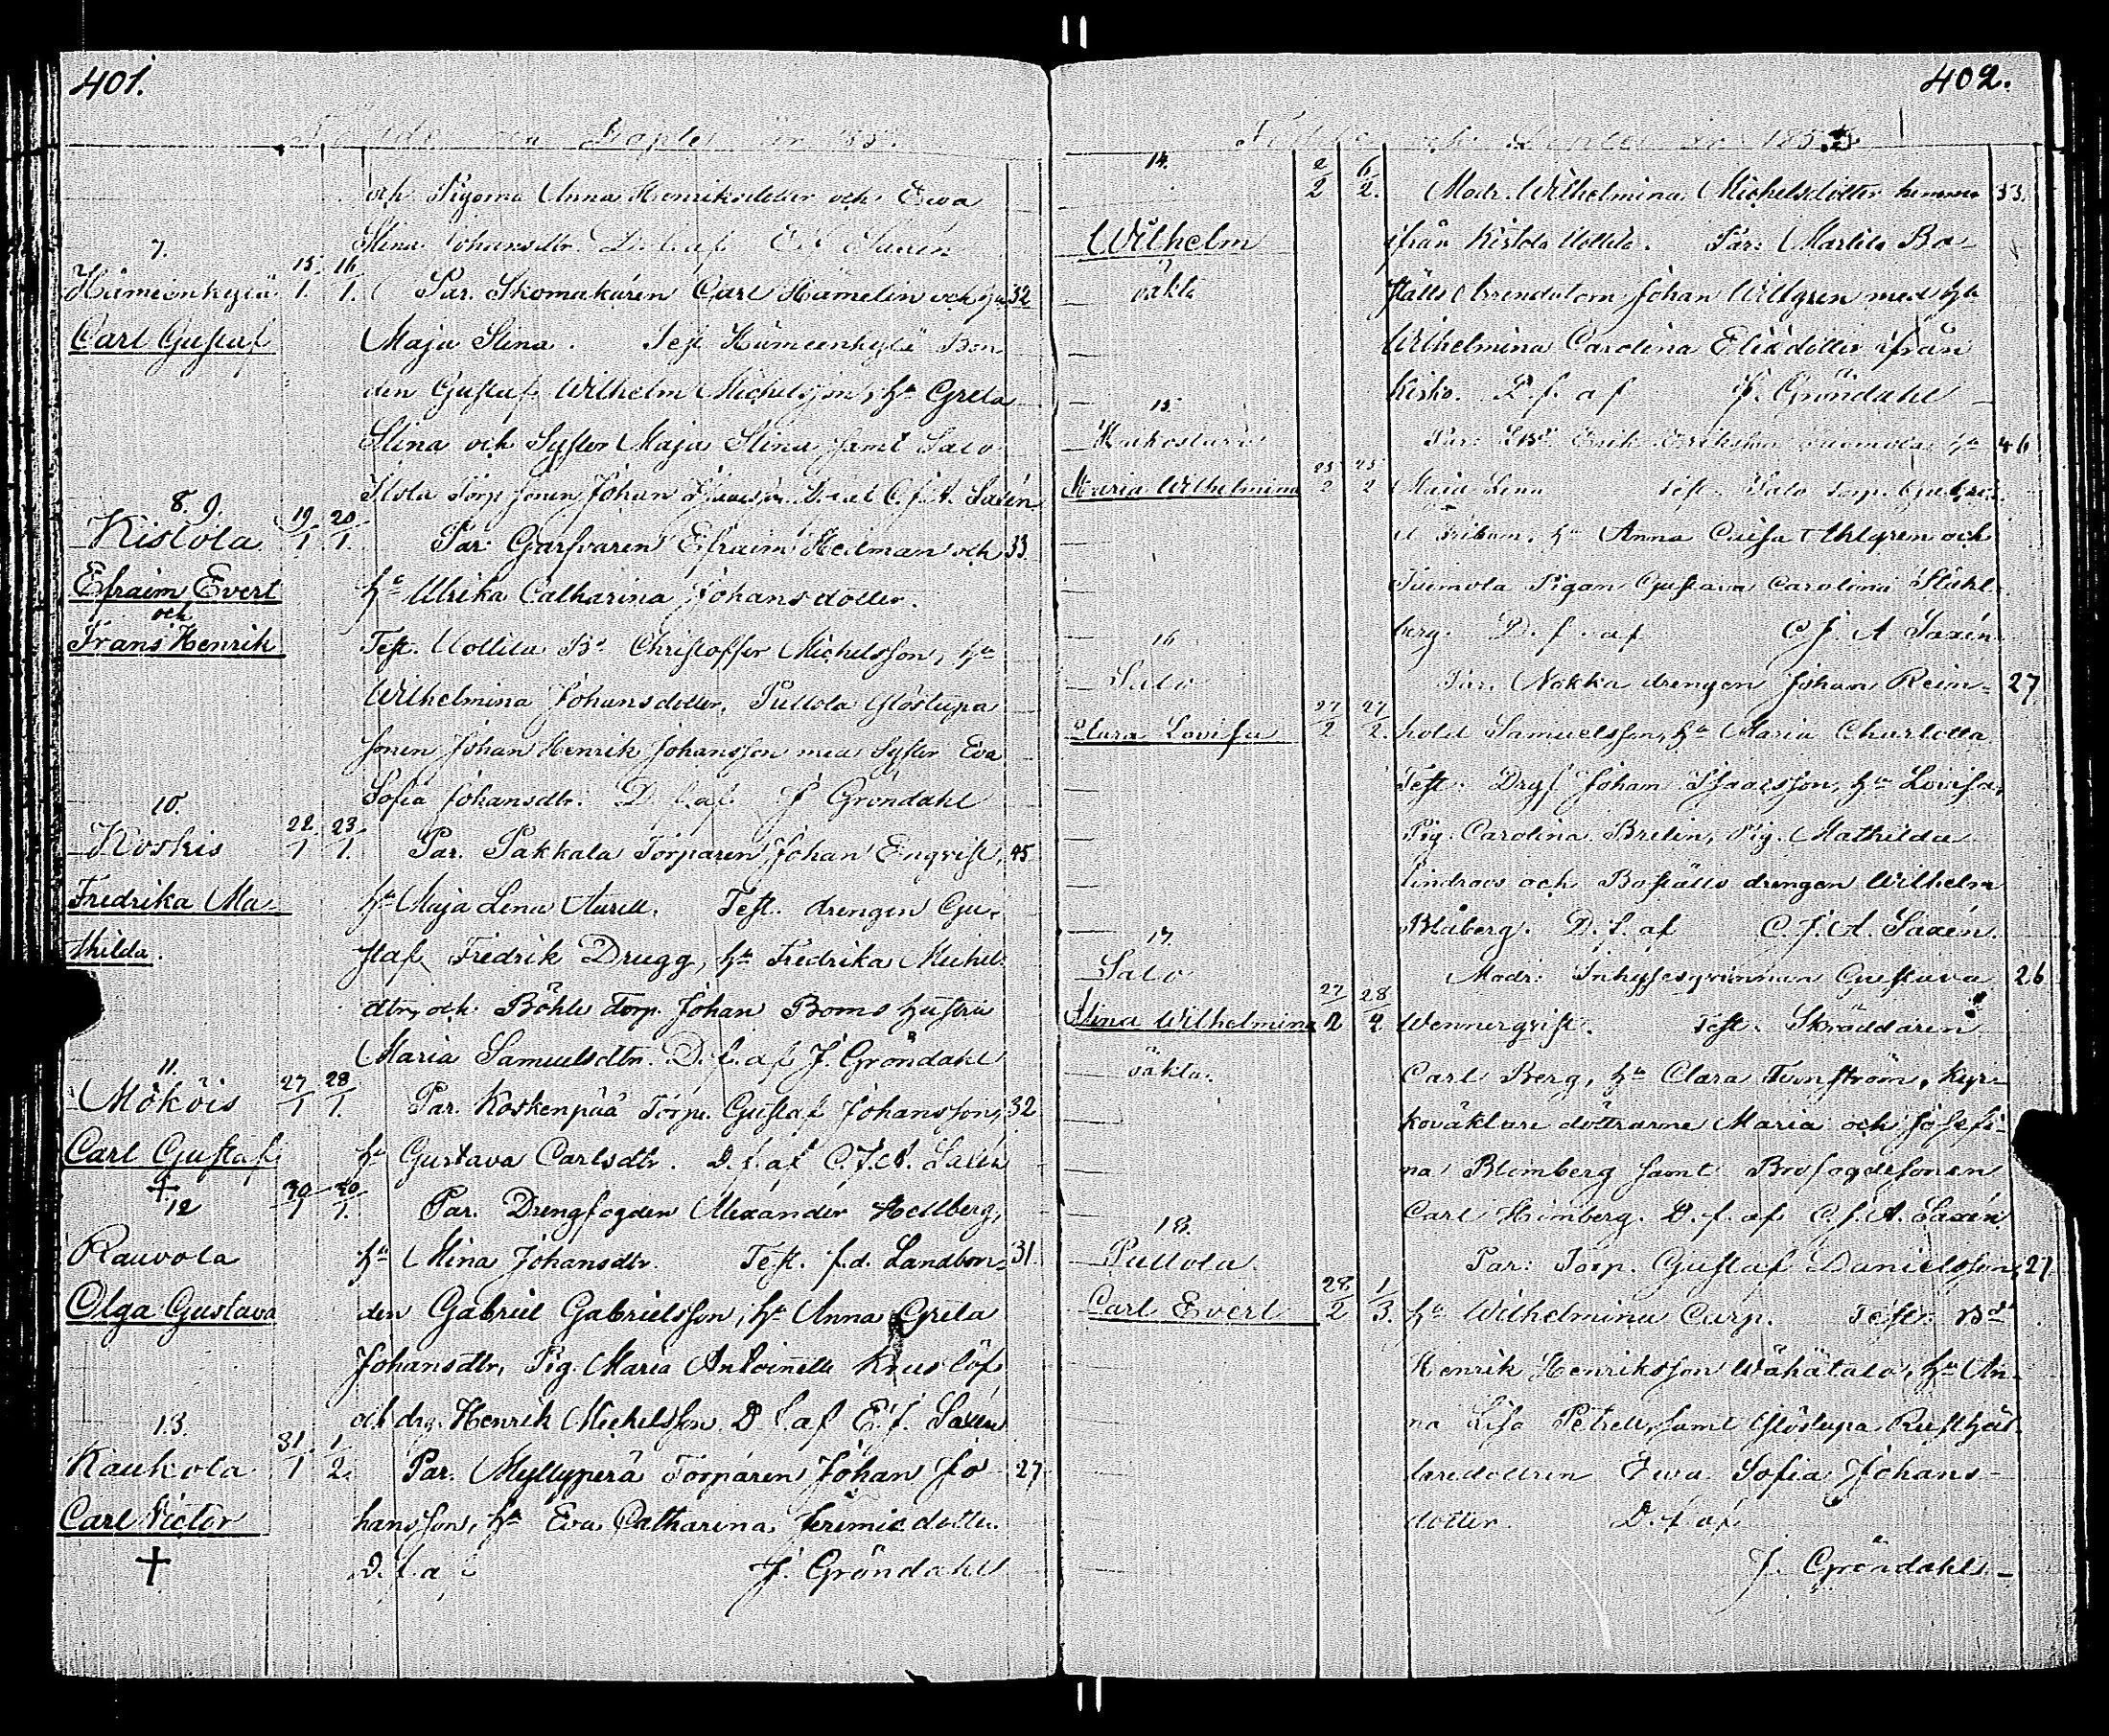 401.
och Pigorna Anna Henriksdotter och Ewa
Stina Johansdtr. D. f. af E. J. Saxén
7.
Hämeenkylä 15/1. 16/1. Par. Skomakaren Carl Hämelin och hu 32
Carl Gustaf Maja Stina. Test Hämeenkylä Bon
den Gustaf Wilhelm Michelsson, hu Greta
Stina och Syster Maja Stina samt Salo
Torp sonen Johan D. f. af C. J. A. Saxén
8. 9.
Kistola 19/1 20/1. Par. Garfvaren Efraim Hedman och 33
Efraim Evert hu Ulrika Catharina Johansdotter.
och
Frans Henrik Test. Uollila Bd Christoffer Michelsson, hu
Wilhelmina Johansdotter, Pullola
sonen Johan Henrik Johansson med Syster Eva
Sofia Johansdtr. D. f. af J Gröndahl
10.
Koskis 22/1 23/1. Par. Pakkala Torparen Johan Enqvist, 45
Fredrika Ma hu Maja Lena Aurell. Test. drengen Gu-
thilda. staf Fredrik Drugg, hu Fredrika Michels
dtr, och Böhle Torp. Johan Boms hustru
Maria Samuelsdtr. D. f. af J. Gröndahl
11.
Mököis 27/1 28/1. Par. Koskenpää Torp. Gustaf Johansson, 32
Carl Gustaf hu Gustava Carlsdtr. D. f. af C. J. A. Saxén
+
12 30/1 30/1. Par. Drengfogden Alexander Hellberg,
Rauvola hu Mina Johansdtr. Test. f.d. Landbon- 31
Olga Gustava den Gabriel Gabrielsson, hu Anna Greta
Johansdtr, Pig. Maria Antoinette Knuslöf
och drg. Henrik Michelsson D. f. af E. J. Saxén
13.
Kaukola 31/1 1/2. Par. Myllyperä Torparen Johan Jo 27
Carl Victor hansson, hu Eva Catharina Jeremiedotter.
+ D. f. af J. Gröndahl
402.
14. 2/2 6/2. Modr. Wilhelmina Michelsdotter hemma 33.
Wilhelm ifrån Kistola Uollila. Par: Märtilä Bo-
oäkta ställs Arrendatorn Johan Willgren med hu
Wilhelmina Carolina Eliedotter ifrån
15. Kisko. D. f. af J. Gröndahl
Par: Erik Eriksson hu 46
Maria Wilhelmina 25/2 25/2 Maja Lena Test. Salo Torp. Gabri-
el hu Anna Caisa Ahlgren och
Tuimola Pigan Gustava Carolina Ståhl-
16 berg. D. f. af C J. A Saxén
Salo Par. Nokka drengen Johan Rein- 27
Clara Lovisa 27/2 27/2. hold Samuelsson, hu Maria Charlotta
Test. Johan Isaacsson, hu Lovisa,
Pig. Carolina Brelin, Pig. Mathilda
Lindroos och Boställs drengen Wilhelm
17. Blåberg. D. f. af C. J. A. Saxén.
Salo Modr: Inhysesqvinnan Gustava 26
Stina Wilhelmina 27/2 28/2 Wennerqvist. Test. Skräddaren
oäkta. Carl Berg, hu Clara Tunström, Kyr-
koväktare döttrarne Maria och Josefi-
na Blomberg samt Brofogdesonen
18. Carl Himberg. D. f. af C. J. A. Saxén
Pullola Par: Torp. Gustaf Danielsson, 27
Carl Evert 28/2 1/3. hu Wilhelmina Carp. Test. Bd
Henrik Henriksson Wähätalo, hu An-
na Lisa Petrell, samt Rusthål-
laredottren Ewa Sofia Johans-
dotter D. f. af
J. Gröndahl.